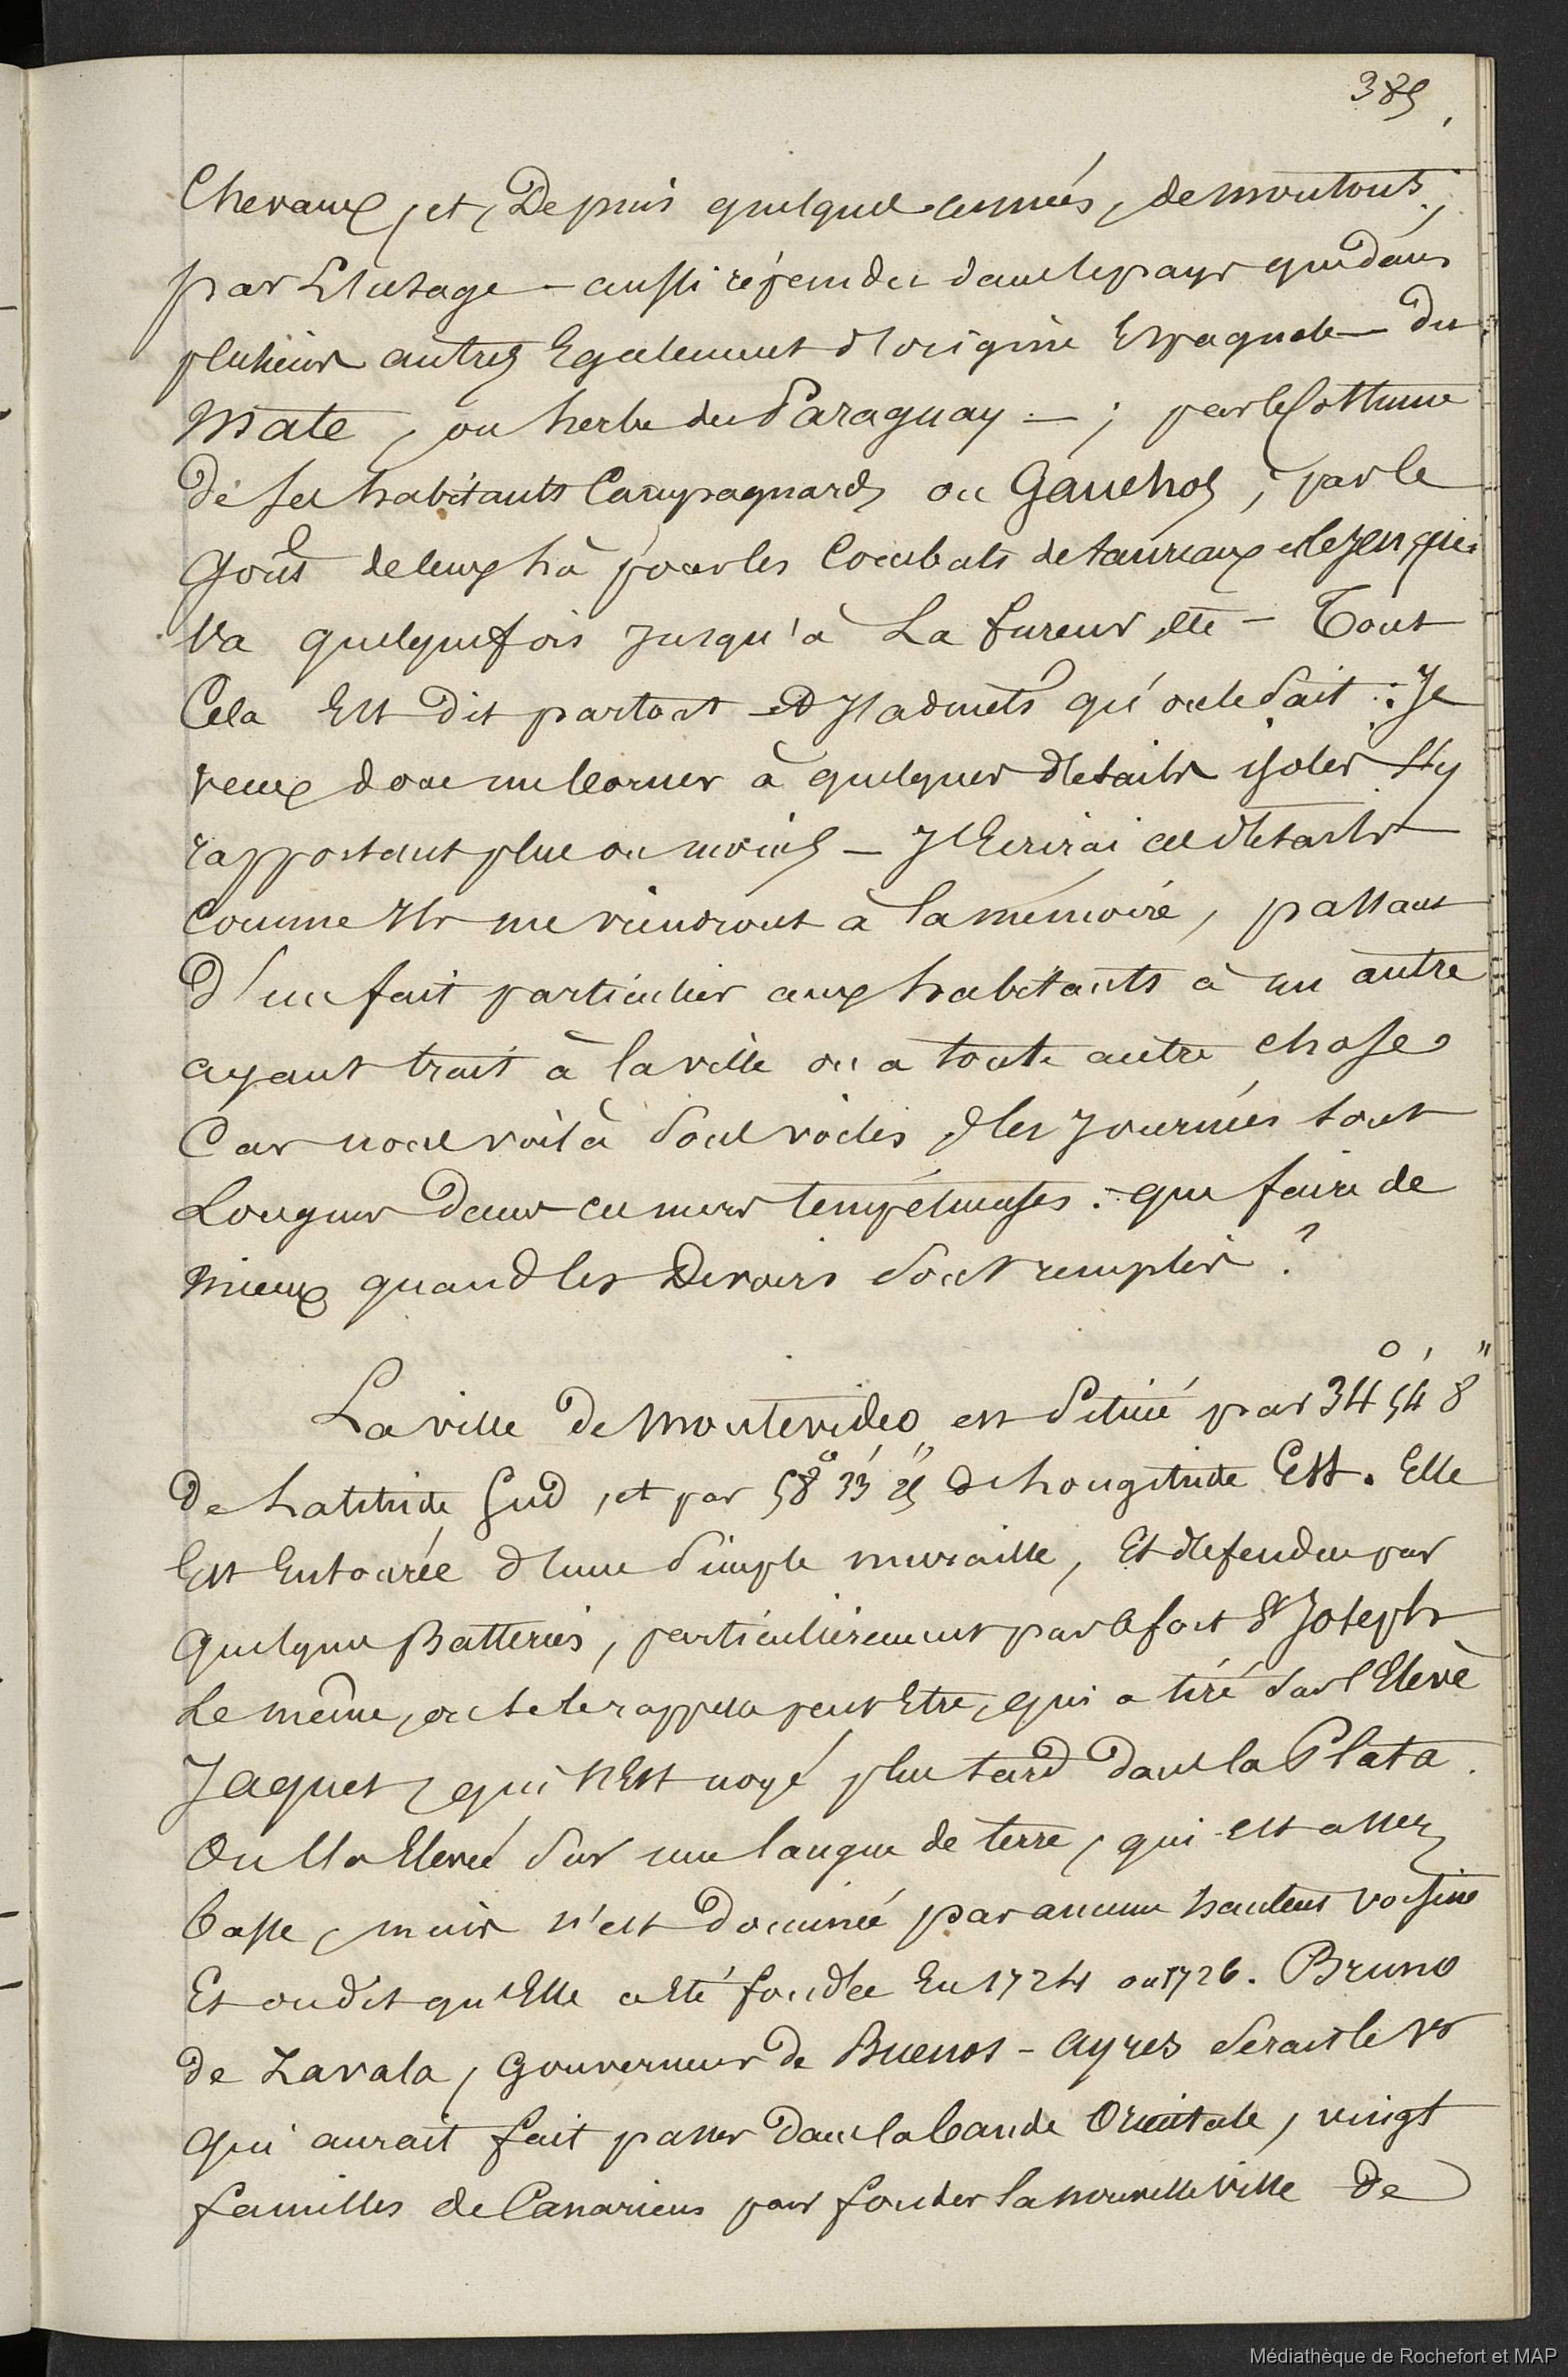 385
Chevaux, et, Depuis quelques années, de moutons;
par L'usage – aussi répendu dans le pays que dans
plusieurs autres Egalement d'origine Espagnole – du
Mate, ou herbe du Paraguay – ; par le Costume
de ses habitants Campagnards ou Gauchos; par le
Goût de ceux là pour les Combats de taureaux et le jeu qui
Va quelquefois jusqu'à La fureur, etc – Tout
Cela Est dit partout et J'admets qu'on le sait : Je
veux donc me borner à quelques détails isolés s'y
rapportant plus ou moins – J'Ecrirai ces détails
Comme Ils me viendront à la mémoire, passant
D'un fait particulier aux habitants à un autre
ayant trait à la ville ou a toute autre chose
Car nous voilà sous voiles & les journées sont
Longues dans ces mers tempétueuses : que faire de
Mieux quand les Devoirs sont remplis ?
La ville de Montevideo est Située par 34° 54' 8"
De Latitude Sud, et par 58° 33' 25" de Longitude Est. Elle
Est Entourée d'une Simple muraille, Et défendue par
Quelques Batteries, particulièrement par le fort St Joseph
Le même, on se le rappelle peut Etre, qui a tiré sur l'Elève
Jaques, qui s'Est noyé plus tard dans la Plata.
On l'a Elevée Sur une langue de terre, qui est assez
basse, mais n'est dominée par aucune hauteur voisine
Et on dit qu'Elle a Eté fondée En 1724 ou 1726. Bruno
de Zavala, Gouverneur de Buenos-Ayres serait le 1er
Qui aurait fait passer dans la bande Orientale, vingt
familles de Canariens pour fonder la nouvelle ville de
Médiathèque de Rochefort et MAP